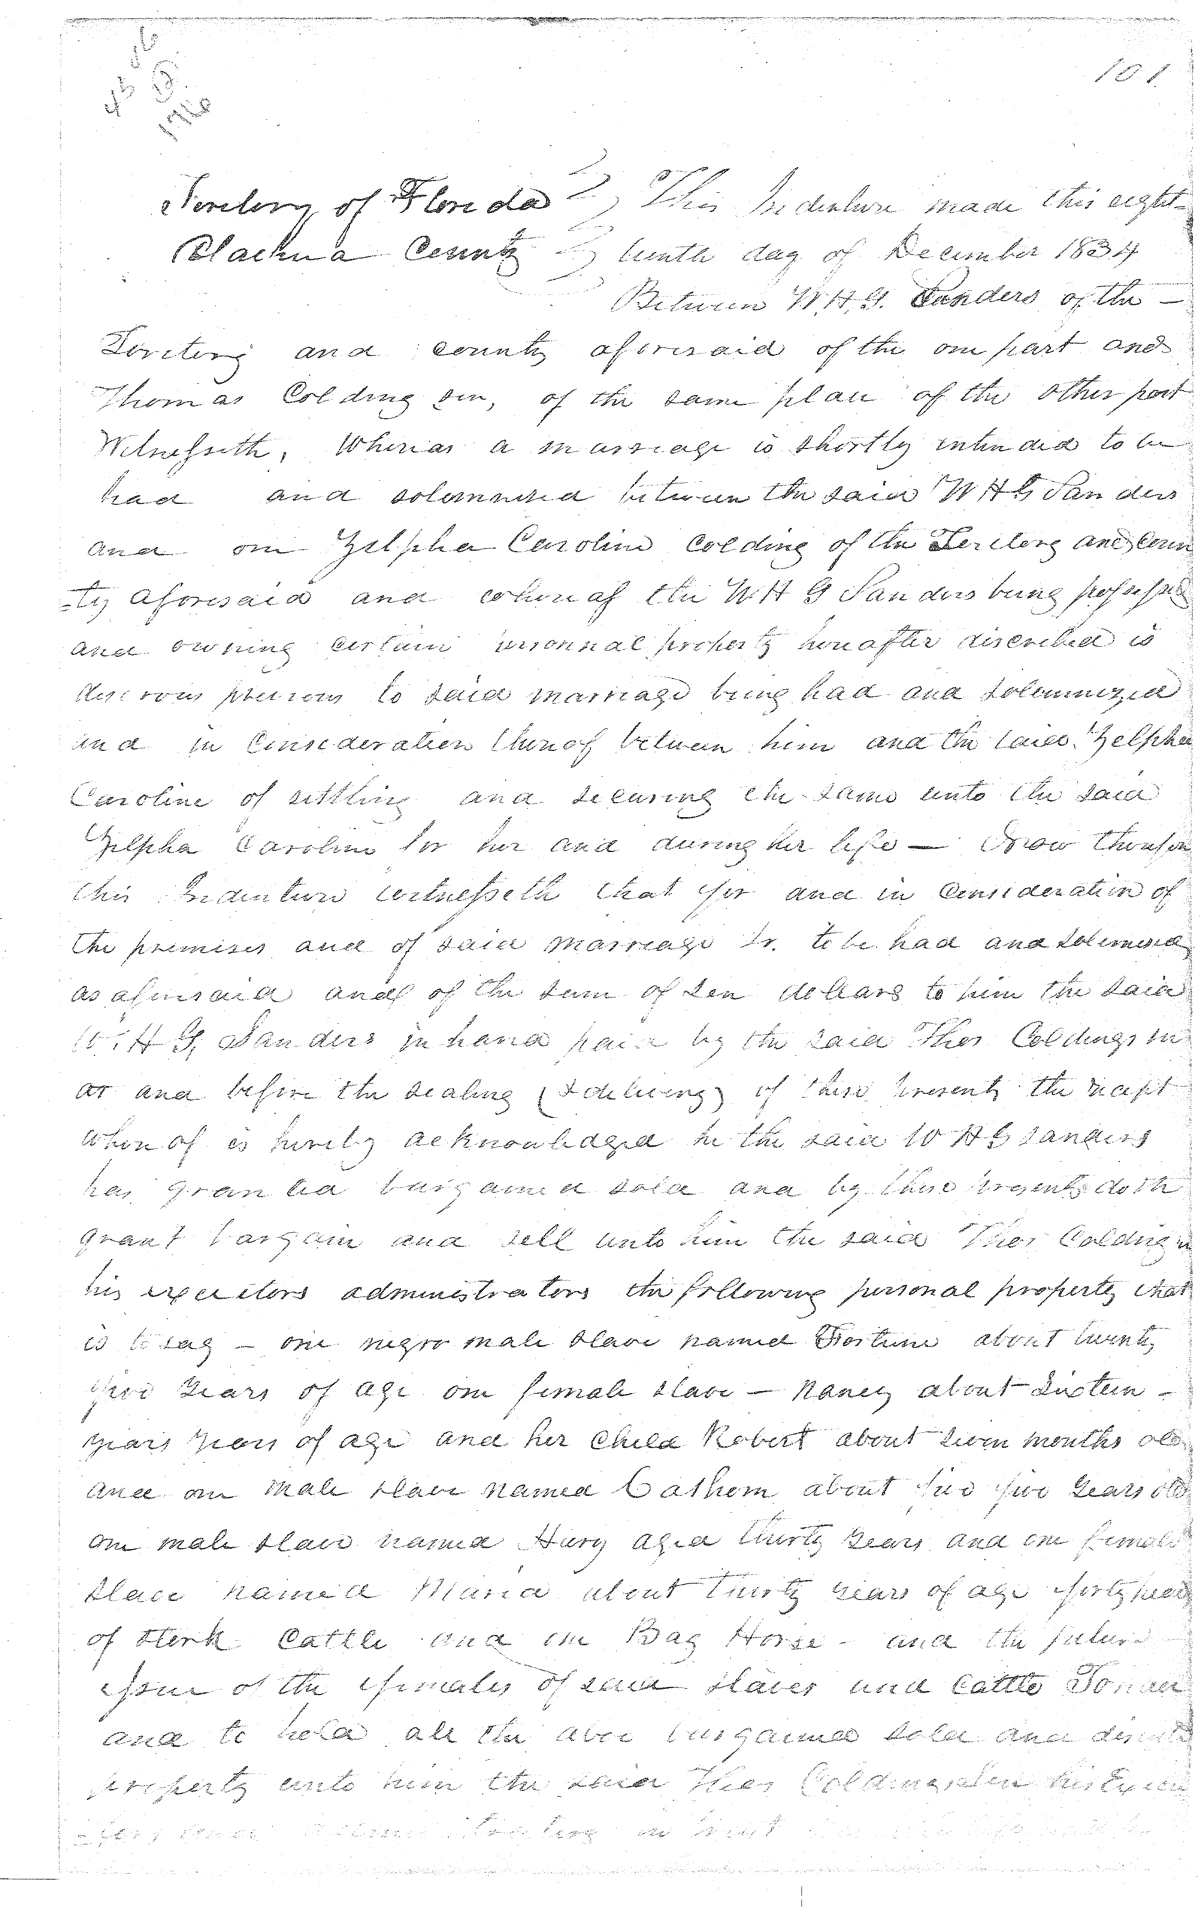 101
Teritory of Florida This Indenture made this eight-
Alachua County teenth day of December 1834
Between W. H. G. Sanders of the —
Teritory and county aforesaid of the one part and
Thomas Colding sen, of the same place of the other part
Witnesseth, Whereas a marriage is shortly intended to be
had and solemnised between the said W H G Sanders
and one Zelpha Caroline Colding of the Teritory and Coun
-ty aforesaid and whereas the W H G Sanders being possessed
and owning certain personnal property hereafter discribed is
desirous previous to said marriage being had and solemnized
and in Consideration thereof between him and the said Zelpha
Caroline of settling and securing the same unto the said
Zelpha Caroline for her and during her life — Now therefore
this Indenture witnesseth that for and in Consideration of
the premises and of said marriage so to be had and solemnised
as aforesaid and of the sum of ten dollars to him the said
W. H G. Sanders in hand paid by the said Thos Colding sen
at and before the sealing (& delivery) of these presents the recept
whereof is hereby acknowledged he the said W H G Sanders
has granted bargained sold and by these presents doth
grant bargain and sell unto him the said Thos Colding sen
his executors administrators the following personal property that
is to say — one negro male slave named Fortune about twenty
five years of age one female slave — Nancy about Sixteen -
years years of age and her child Robert about seven months old
and one male slave named about five years old
one male slave named aged thirty years and one female
slave named Maria about thirty years of age forty head
of Stock Cattle and one Bay Horse - and the future
issue of the females of said slaves and Cattle To have
and to hold all the above bargained sold and
property unto him the said Thos Colding sen his
in trust